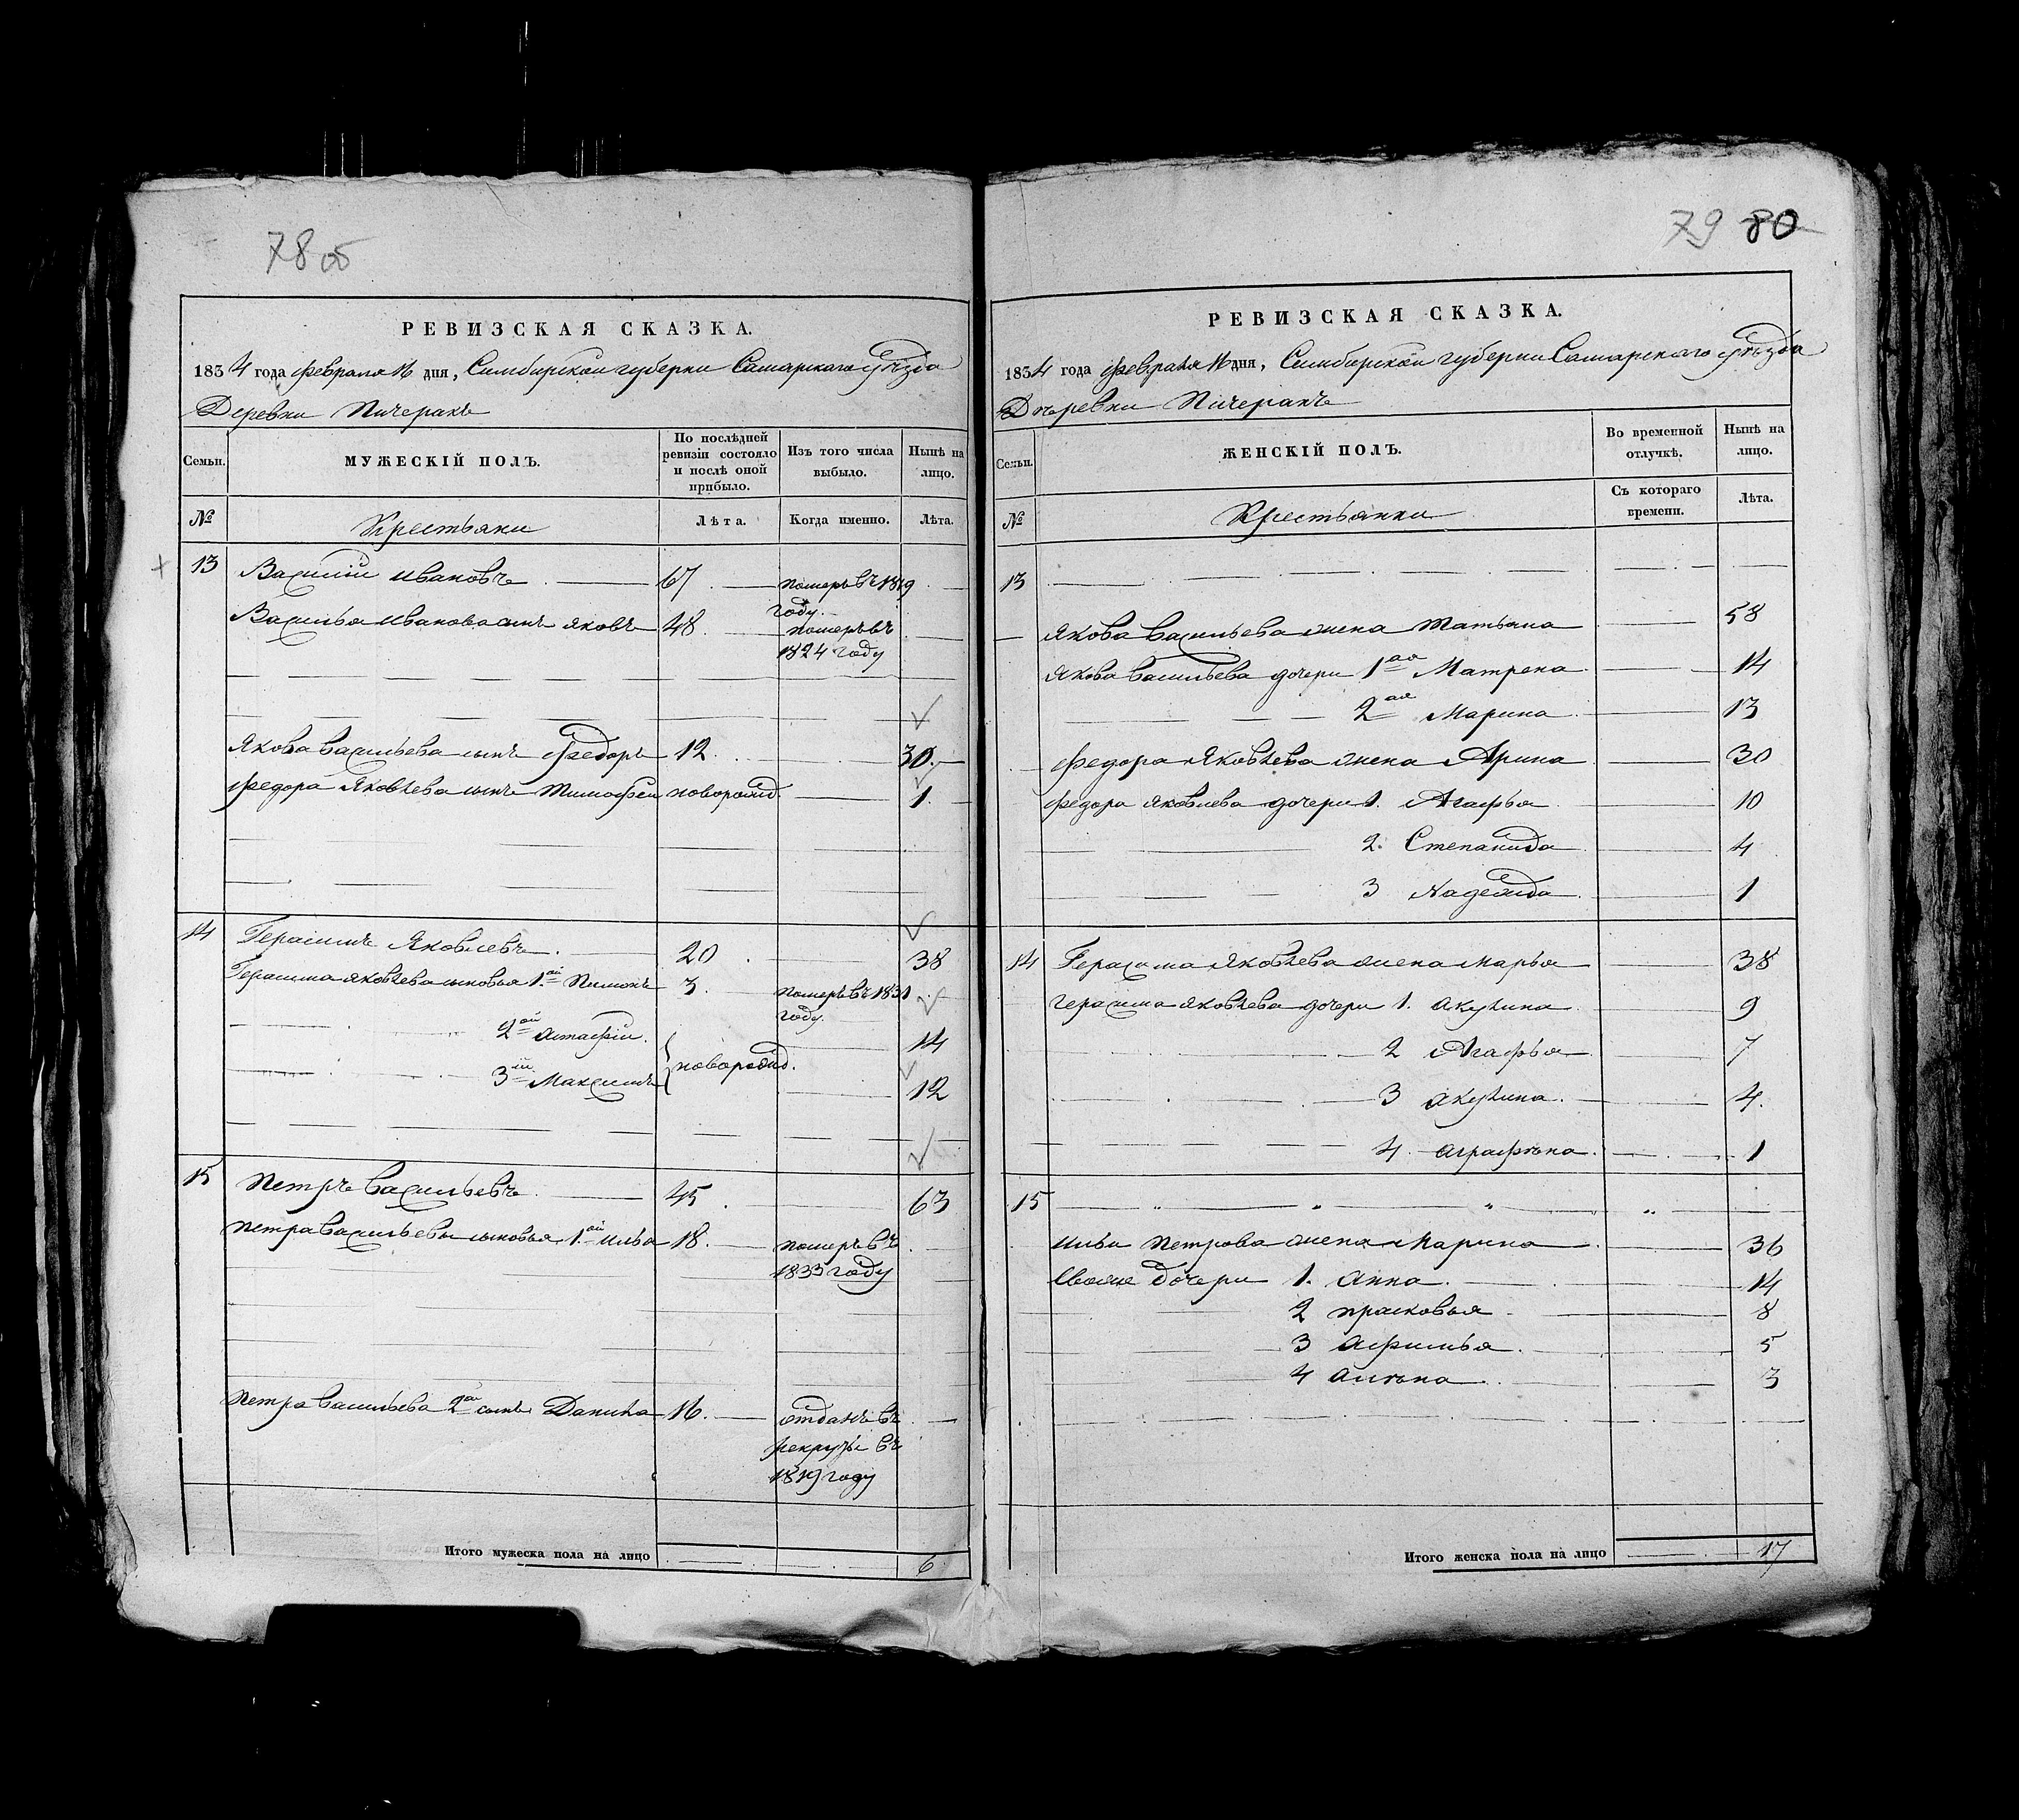 78 об
РЕВИЗСКАЯ СКАЗКА.
1834 года февраля 16 дня, Симбирской губернии Самарского уѣзда
Деревни Пичеракъ
Семьи.
МУЖЕСКІЙ ПОЛЪ.
По послѣдней ревизіи состояло и послѣ оной прибыло.
Изъ того числа выбыло.
Нынѣ на лицо.
№
Крестьяни
Лѣта.
Когда именно.
Лѣта.
13 Василій Ивановъ 67 померъ въ 1819
году.
Василья Иванова сынъ Яковъ 48 померъ въ
1824 году
Якова Васильева сынъ Федоръ 12. 30.
Федора Яковлева сынъ Тимофей новорожд. 1.
14 Герасимъ Яковлевъ 20 38
Герасима Яковлева сыновья 1.ой Пимонъ 3. померъ въ 1831
году.
2ой Астафiй. 14
новорожд.
3iй Максимъ 12
15 Петръ Васильевъ 45 63
Петра Васильева сыновья 1.ой Илья 18. померъ въ
1833 году
Петра Васильева 2ой сынъ Данила 16. отданъ въ
рекруты въ
1819 году
Итого мужеска пола на лицо 6
79 80
РЕВИЗСКАЯ СКАЗКА.
1834 года февраля 16 дня, Симбирской губернии Самарского уѣзда
Деревни Пичеракъ
Семьи.
ЖЕНСКІЙ ПОЛЪ.
Во временной отлучкѣ.
Нынѣ на лицо.
№
Крестьянки
Съ котораго времени.
Лѣта.
13
Якова Васильева жена Татьяна 58
Якова Васильева дочери 1ая Матрена 14
2ая Марина 13
Федора Яковлева жена Арина 30
Федора Яковлева дочери 1. Агафья 10
2. Степанида 4
3 Надежда 1
14 Герасима Яковлева жена Марья 38
Герасима Яковлева дочери 1. Акулина 9
2 Агафья 7
3 Акулина. 4.
4. Аграфѣна 1
15
Ильи Петрова жена Марина 36
дочери 1. Анна. 14
2 Прасковья 8
3 Афимья. 5
4 Алѣна 3
Итого женска пола на лицо 17